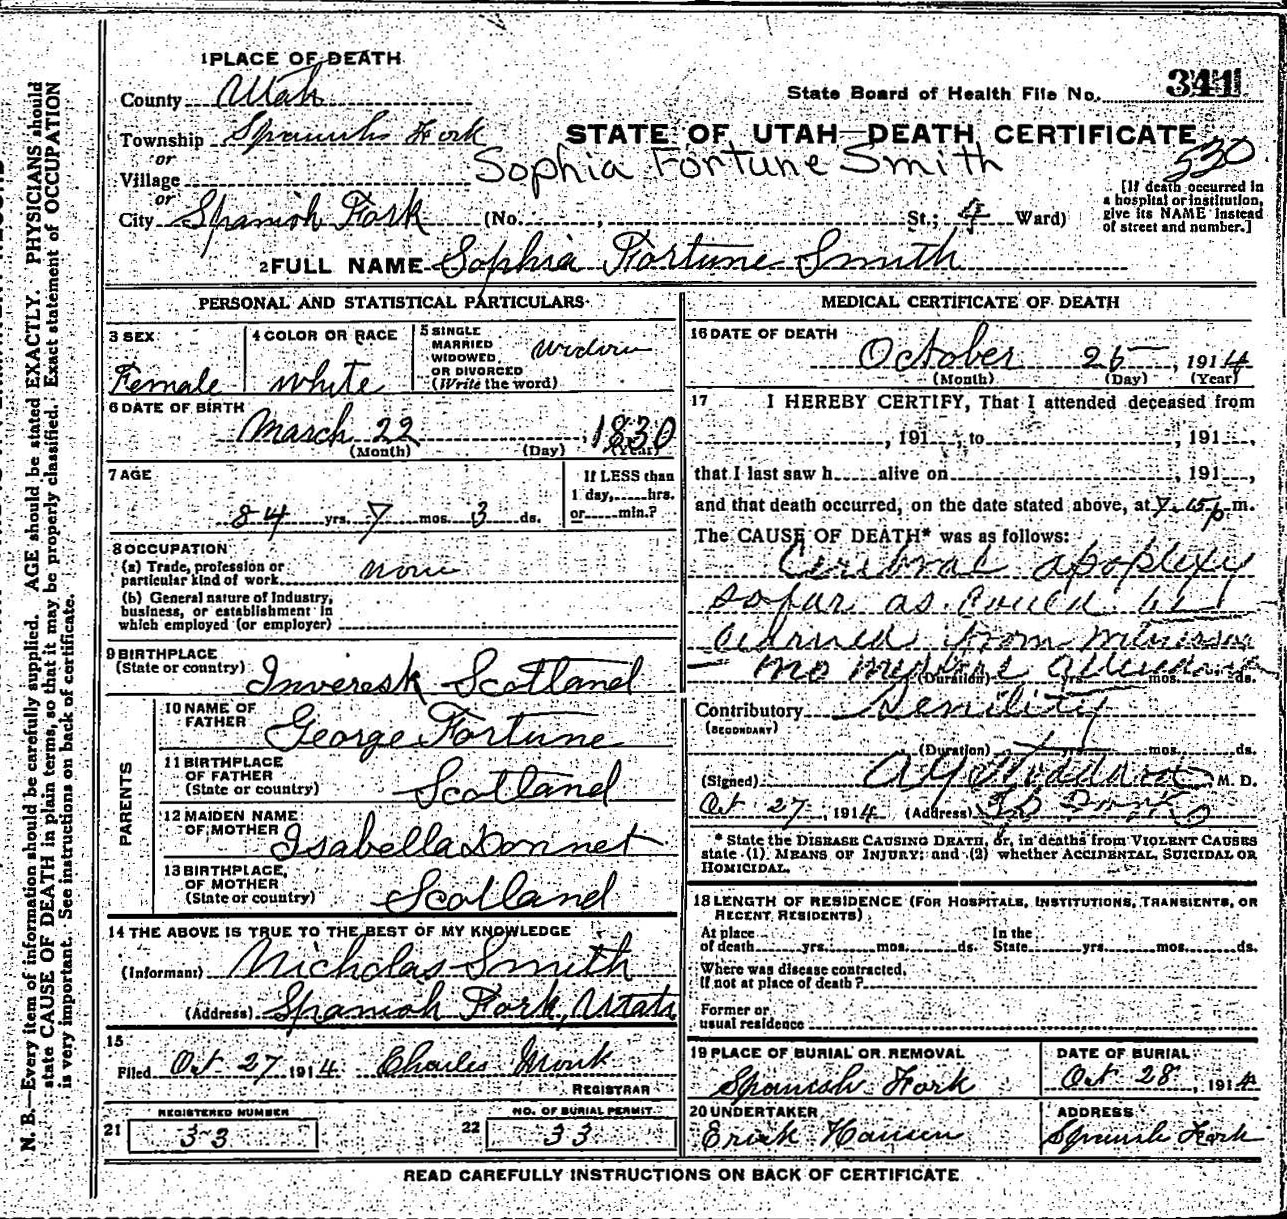 1 PLACE OF DEATH
County Utah
State Board of Health File No. 341
Township Spanish Fork
STATE OF UTAH—DEATH CERTIFICATE
or
Sophia Fortune Smith
530
Village
or
City Spanish Fork (No. , St.; 4 Ward)
[If death occurred in
a hospital or institution,
give its NAME instead
of street and number.]
2 FULL NAME Sophia Fortune Smith
PERSONAL AND STATISTICAL PARTICULARS
3 SEX
Female
4 COLOR OR RACE
white
5 SINGLE
MARRIED
WIDOWED
OR DIVORCED
(Write the word)
widow
6 DATE OF BIRTH
March 22, 1830
(Month) (Day) (Year)
7 AGE
84 yrs. 7 mos. 3 ds.
If LESS than
1 day, hrs.
or min.?
8 OCCUPATION
(a) Trade, profession or
particular kind of work none
(b) General nature of Industry,
business, or establishment in
which employed (or employer)
9 BIRTHPLACE
(State or country) Inveresk Scotland
PARENTS
10 NAME OF
FATHER George Fortune
11 BIRTHPLACE
OF FATHER
(State or country) Scotland
12 MAIDEN NAME
OF MOTHER Isabella Donnet
13 BIRTHPLACE,
OF MOTHER
(State or country) Scotland
14 THE ABOVE IS TRUE TO THE BEST OF MY KNOWLEDGE
(Informant) Nicholas Smith
(Address) Spanish Fork, Utah
15
Filed Oct 27 1914 Charles Monk
REGISTRAR
REGISTERED NUMBER
21 33
NO. OF BURIAL PERMIT
22 33
MEDICAL CERTIFICATE OF DEATH
16 DATE OF DEATH
October 25, 1914
(Month) (Day) (Year)
17 I HEREBY CERTIFY, That I attended deceased from
, 191 , to , 191 ,
that I last saw h alive on , 191 ,
and that death occurred, on the date stated above, at 7.15 p m.
The CAUSE OF DEATH* was as follows:
Cerebral apoplexy
so far as could be
learned from
— no medical attendance
(Duration) yrs. mos. ds.
Contributory Senility
(SECONDARY)
(Duration) yrs. mos. ds.
(Signed) A G Stoddard M. D.
Oct 27, 1914 (Address)
* State the DISEASE CAUSING DEATH, or, in deaths from VIOLENT CAUSES
state (1) MEANS OF INJURY; and (2) whether ACCIDENTAL, SUICIDAL OR
HOMICIDAL.
18 LENGTH OF RESIDENCE (FOR HOSPITALS, INSTITUTIONS, TRANSIENTS, OR
RECENT RESIDENTS)
At place
of death yrs. mos. ds.
In the
State yrs. mos. ds.
Where was disease contracted,
If not at place of death?
Former or
usual residence
19 PLACE OF BURIAL OR REMOVAL
Spanish Fork
DATE OF BURIAL
Oct 28, 1914
20 UNDERTAKER
Erick Hansen
ADDRESS
Spanish Fork
READ CAREFULLY INSTRUCTIONS ON BACK OF CERTIFICATE
N. B.—Every item of information should be carefully supplied. AGE should be stated EXACTLY. PHYSICIANS should
state CAUSE OF DEATH in plain terms, so that it may be properly classified. Exact statement of OCCUPATION
is very important. See instructions on back of certificate.